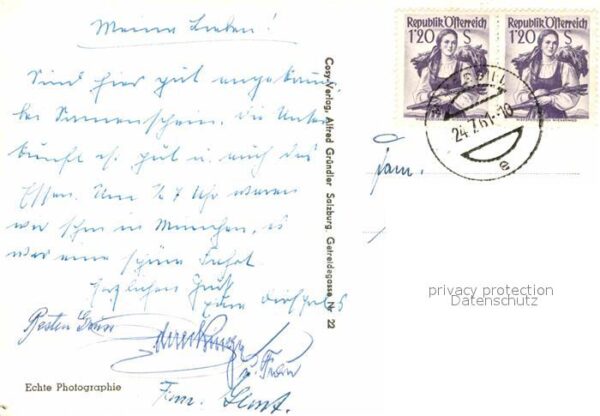 Meine Lieben!
Sind hier gut angekommen
bei Sonnenschein, die Unter
kunft ist gut u. auch das
Essen. Um 1/2 7 Uhr waren
wir schon in München, es
war eine schöne Fahrt.
Herzlichen Gruß
Besten Gruß
u. Frau
Fam.
Echte Photographie
Cosy-Verlag, Alfred Gründler Salzburg, Getreidegasse Nr. 22
Republik Österreich
1'20 S
Republik Österreich
1'20 S
24.7.61-10
e
Fam.
privacy protection
Datenschutz